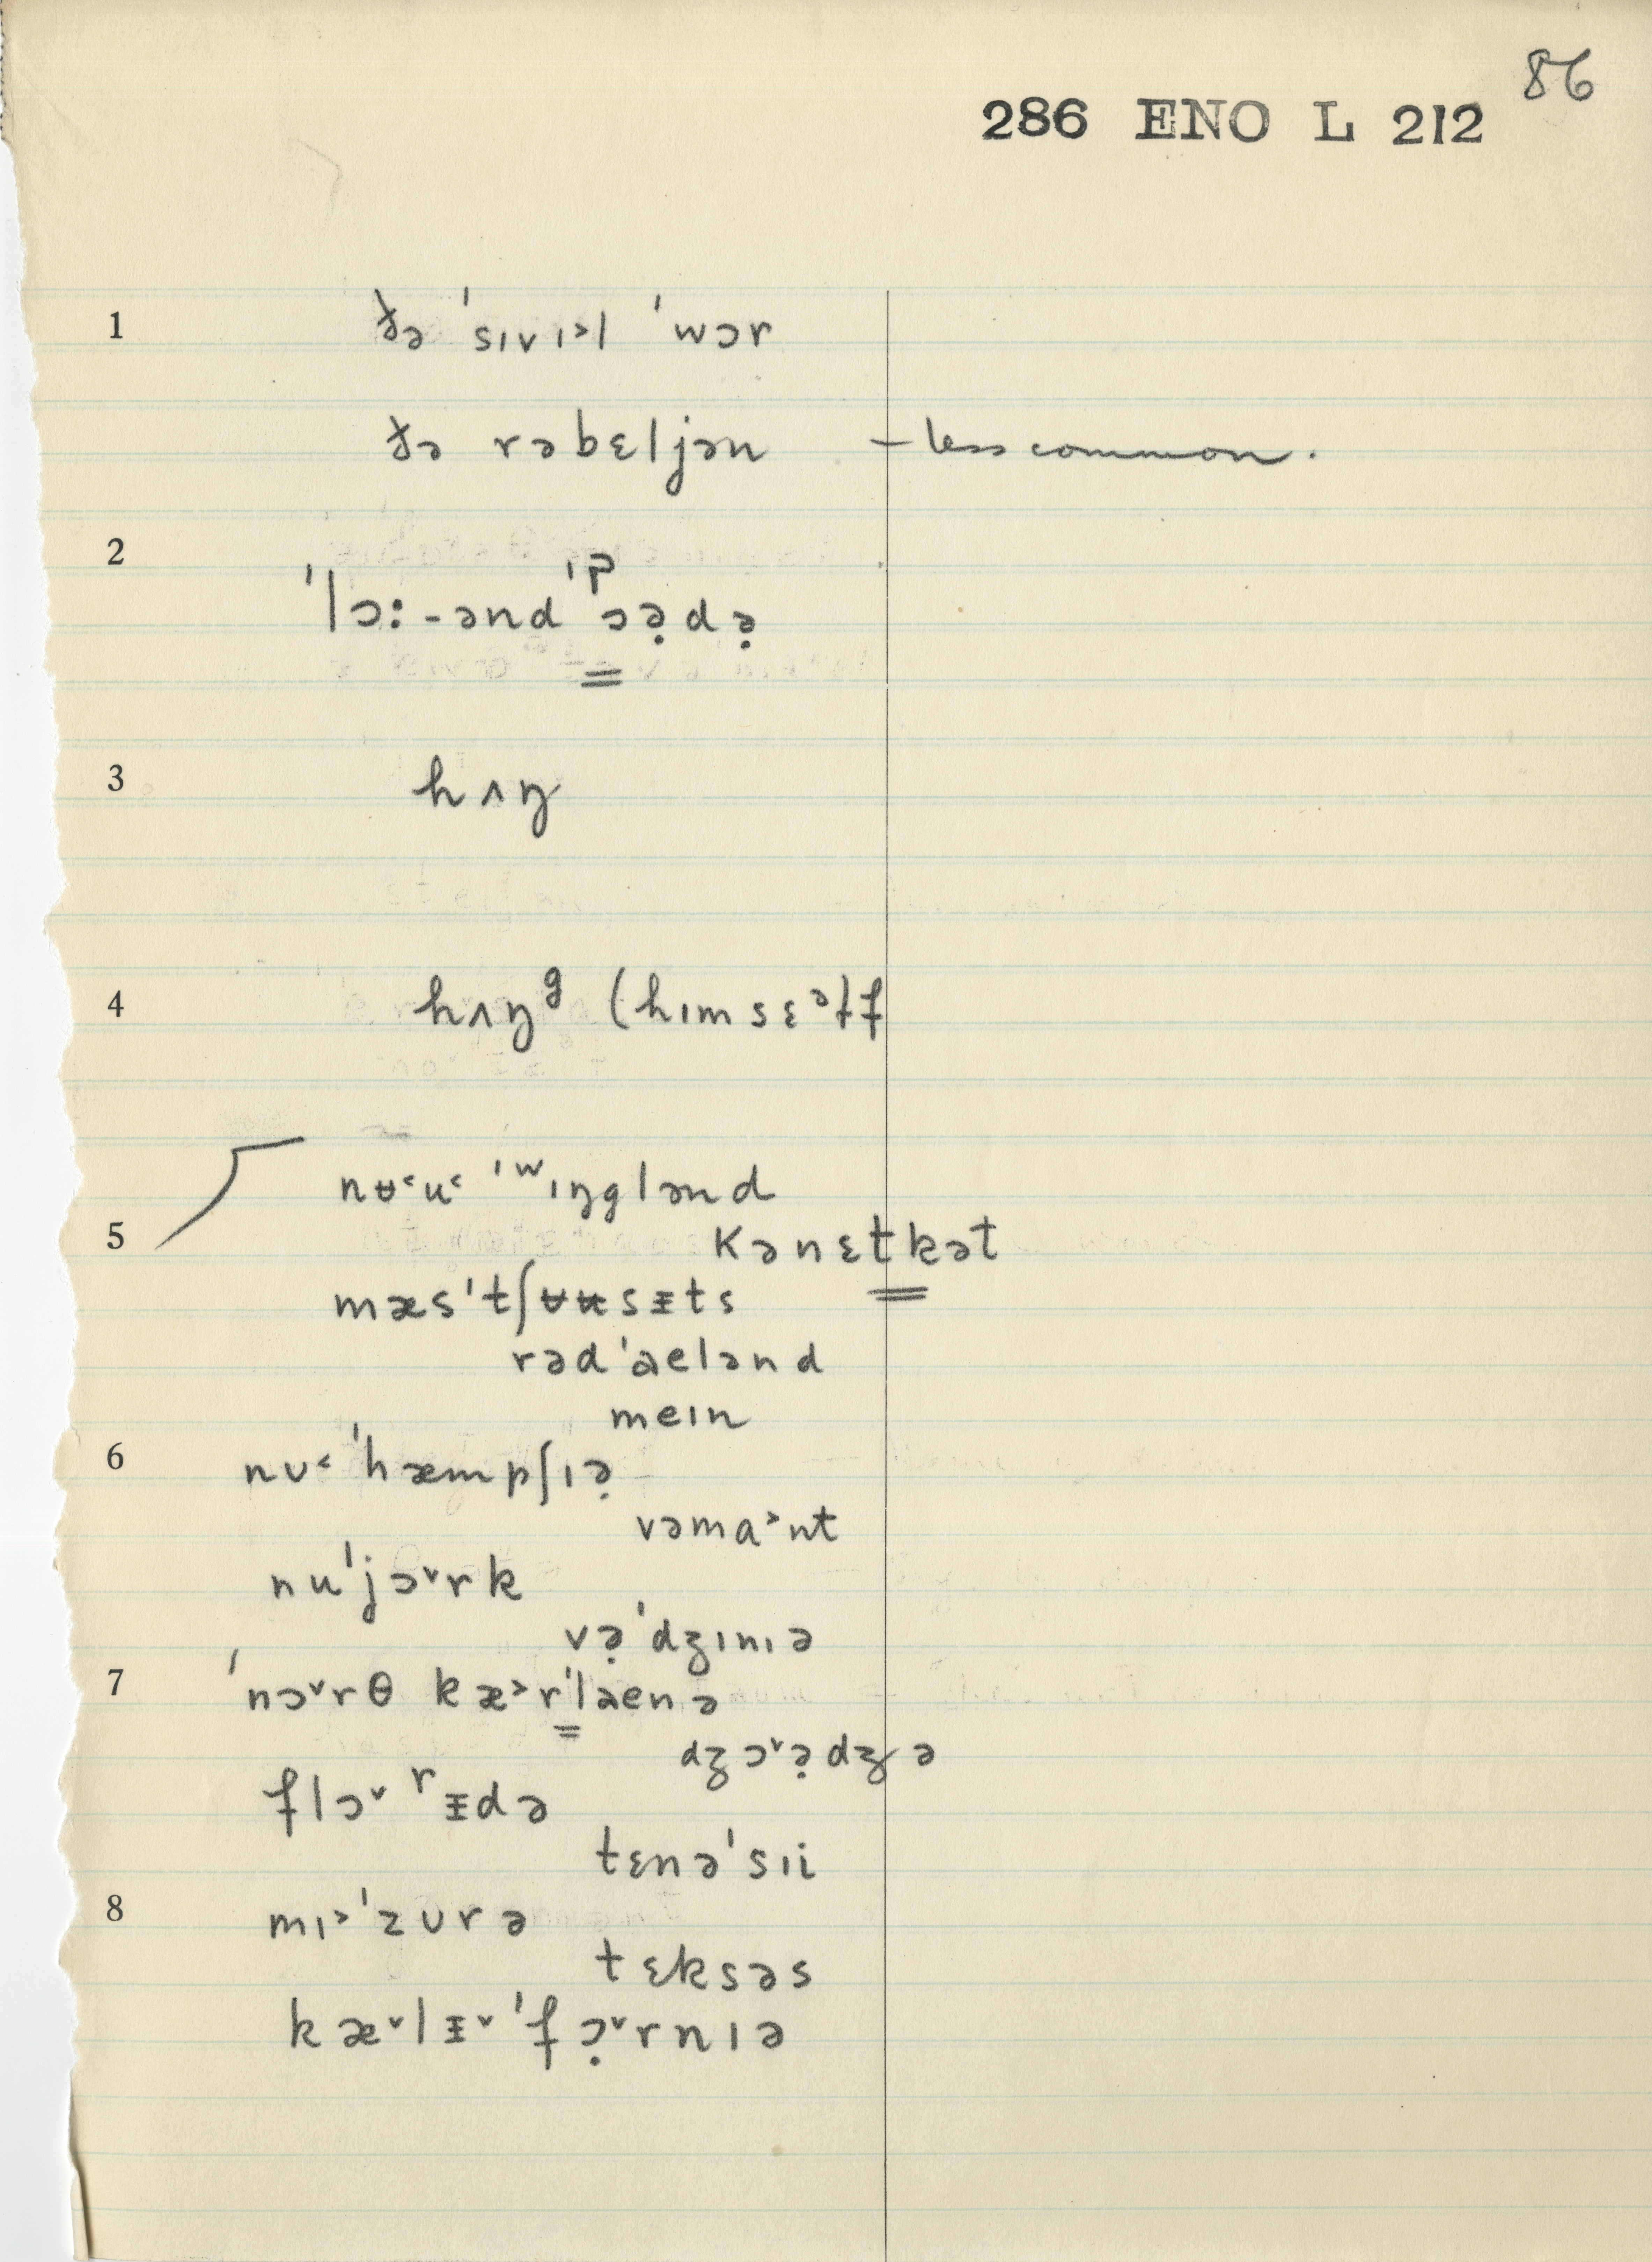 86
286 ENO L 212
1 ðə ˈsɪvɪ˃l ˈwɔr
ðə rəbɛljən – less common.
2 ˈlɔː-ənd ˈᵖɔə̣də̣
3 hʌŋ
4 hʌŋᵍ (hɪmsɛᵊɫf
nʉ˂u˂ ˈʷɪŋglənd
5 kənɛtkət
mæsˈtʃʉʉsɪ̵ts
rədˈaelənd
meɪn
6 nʊ˂ ˈhæmpʃɪə̣
vəma˃nt
nuˈjɔ˅rk
və̣ˈdʒɪnɪə
7 ˈnɔ˅rθ kæ˃rˈlaenə
dʒɔ˅ə̣dʒə
flɔ˅ʳɪ̵də
tɛnəˈsɪi
8 mɪ˃ˈzʊrə
tɛksəs
kæ˅lɪ̵˅ˈfɔ̣˅rnɪə